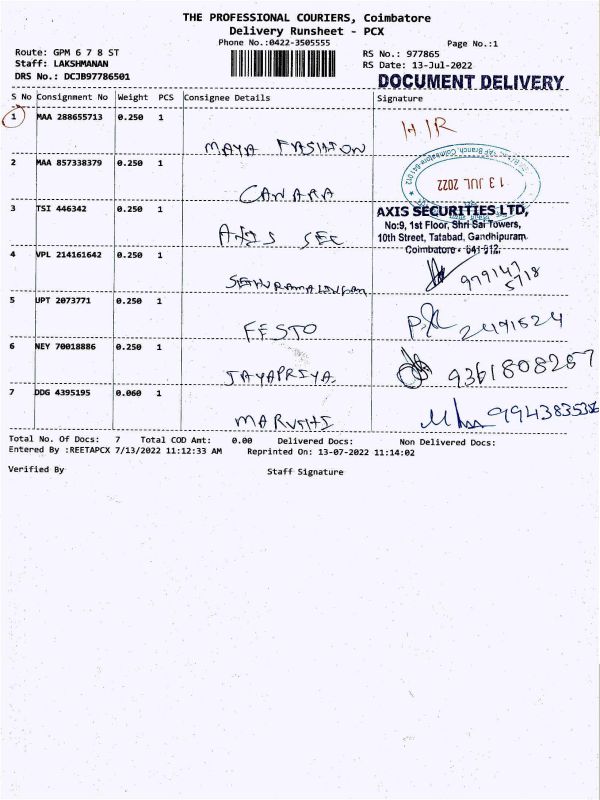 THE PROFESSIONAL COURIERS, Coimbatore
Delivery Runsheet - PCX
Phone No.:0422-3505555
Page No.:1
Route: GPM 6 7 8 ST
RS No.: 977865
Staff: LAKSHMANAN
RS Date: 13-Jul-2022
DRS No.: DCJB97786501
DOCUMENT DELIVERY
S No Consignment No Weight PCS Consignee Details Signature
1 MAA 288655713 0.250 1
MAYA FASHION
2 MAA 857338379 0.250 1
13 JUL 2022
CANARA
3 TSI 446342 0.250 1
AXIS SECURITIES LTD,
No:9, 1st Floor, Shri Sai Towers,
10th Street, Tatabad, Gandhipuram
Coimbatore - 641 012.
AXIS SEC
4 VPL 214161642 0.250 1
SETHURAMALINGAM
5 UPT 2073771 0.250 1
FESTO
6 NEY 70018886 0.250 1
JAYAPRIYA
7 DDG 4395195 0.060 1
MARUTHI
Total No. Of Docs: 7 Total COD Amt: 0.00 Delivered Docs: Non Delivered Docs:
Entered By :REETAPCX 7/13/2022 11:12:33 AM Reprinted On: 13-07-2022 11:14:02
Verified By Staff Signature